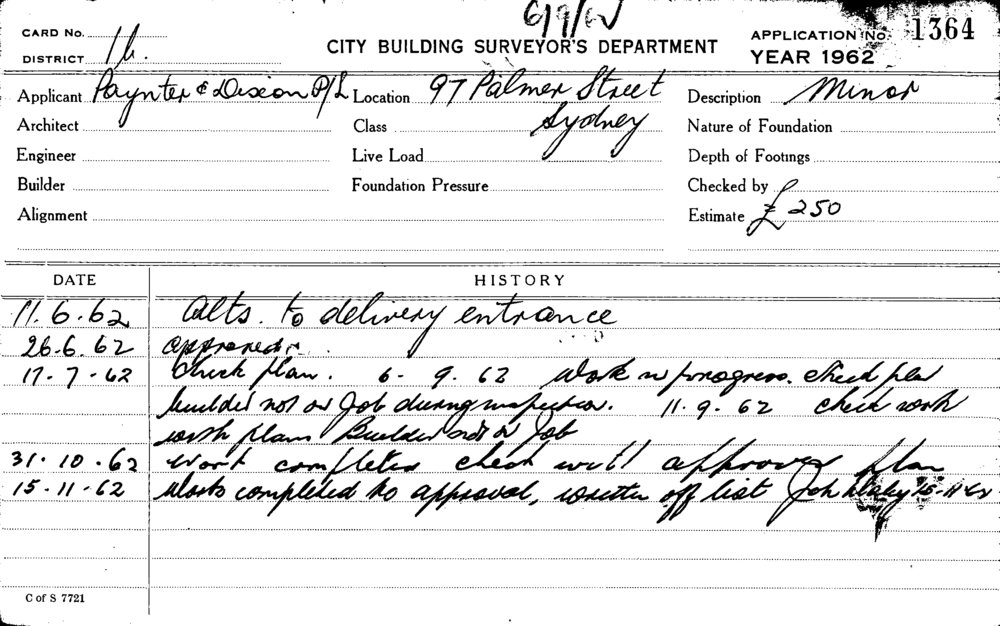 6/9/62
CARD No.
DISTRICT 1b.
CITY BUILDING SURVEYOR'S DEPARTMENT
APPLICATION No. 1364
YEAR 1962
Applicant Paynter & Dixon P/L Location 97 Palmer Street Description Minor
Architect Class Sydney Nature of Foundation
Engineer Live Load Depth of Footings
Builder Foundation Pressure Checked by
Alignment Estimate £ 250
DATE HISTORY
11.6.62 Alts. to delivery entrance
26.6.62 approved
17-7-62 Check plan. 6-9.62 Work in progress. check plan
builder not on Job during inspection. 11.9.62 check work
with plans Builder not on Job
31.10.62 Work completed check with approved plan
15-11-62 Works completed to approval, written off list 15-11-62
C of S 7721